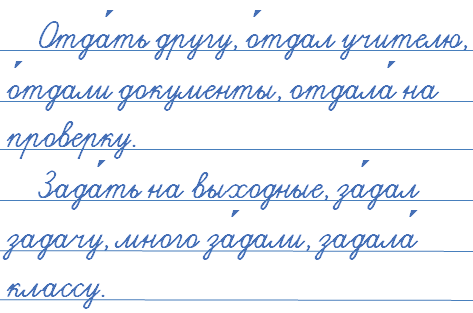 Отда́ть другу, о́тдал учителю,
о́тдали документы, отдала́ на
проверку.
Зада́ть на выходные, за́дал
задачу, много за́дали, задала́
классу.